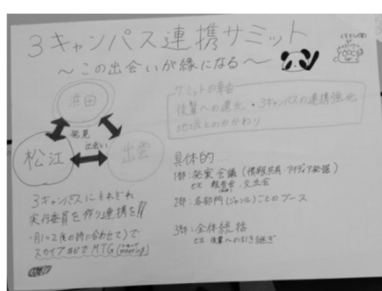 3キャンパス連携サミット
〜この出会いが縁になる〜
浜田
発見
出会い
松江
出雲
3キャンパスにそれぞれ
実行委員を作り連携を!!
スカイプ
MTG
サミットの宣言
後輩への還元・3キャンパスの連携強化
地域とのかかわり
具体的
1部:
会議(情報共有・アイディア
報告会、交流会
2部:各部門(ジャンル)ごとのブース
3部:全体総括
後輩への引き継ぎ